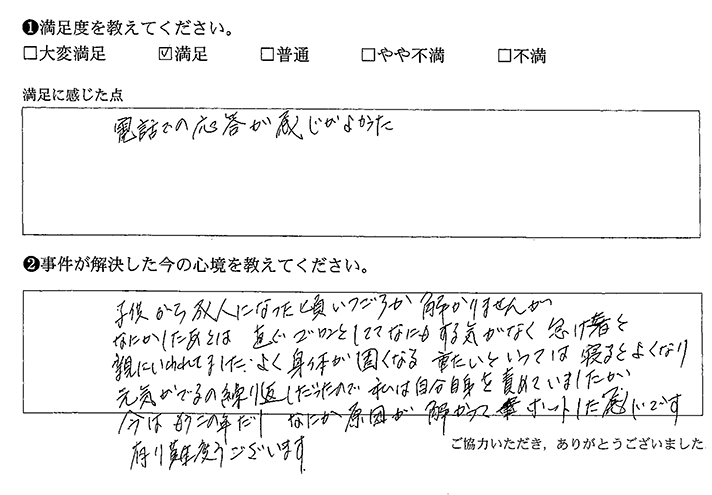 ❶満足度を教えてください。
□大変満足 ☑満足 □普通 □やや不満 □不満
満足に感じた点
電話での応答が感じがよかった
❷事件が解決した今の心境を教えてください。
子供から大人になった頃いつごろか解かりませんが
なにかしたあとは直ぐゴロンとしてなにもする気がなく怠け者と
親にいわれてました。よく身体が固くなる重たいといっては寝るとよくなり
元気がでるの繰り返しだったので私は自分自身を責めていましたが
今はもうこの年だし なにか原因が解かって ホットした感じです
有り難度うございます
ご協力いただき，ありがとうございました